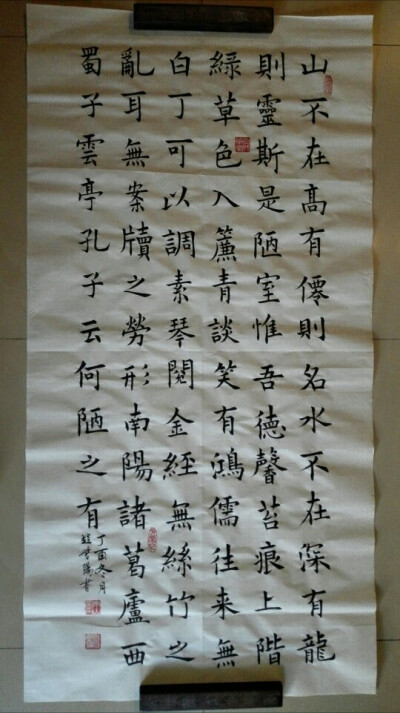 山不在髙有僊則名水不在深有龍
則靈斯是陋室惟吾德馨苔痕上階
綠草色入簾青談笑有鴻儒往来無
白丁可以調素琴閱金經無絲竹之
亂耳無案牘之勞形南陽諸葛廬西
蜀子雲亭孔子云何陋之有
丁酉冬月
書